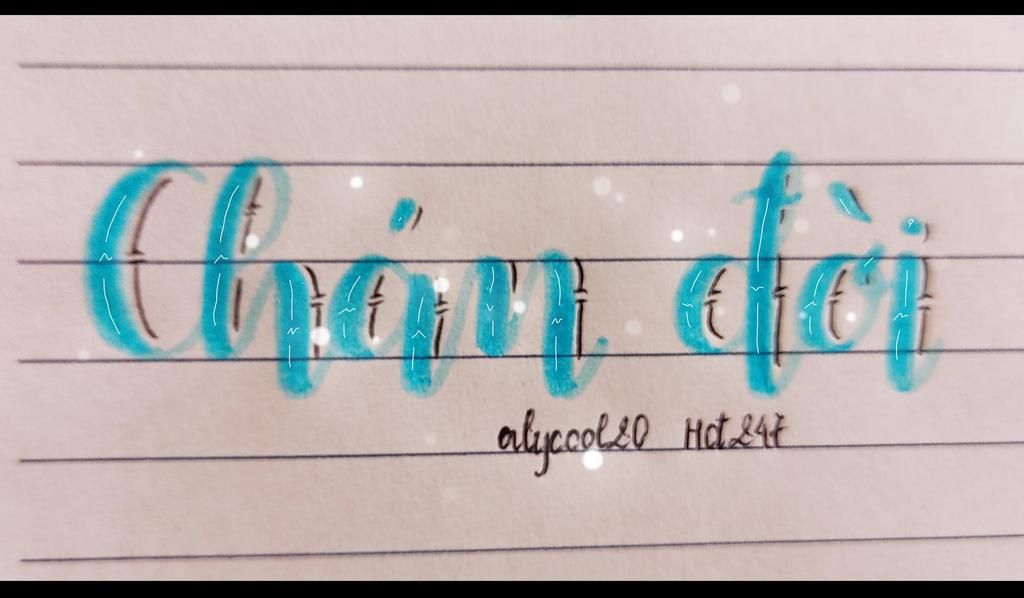 Chán đời
alyccol20 Hct247